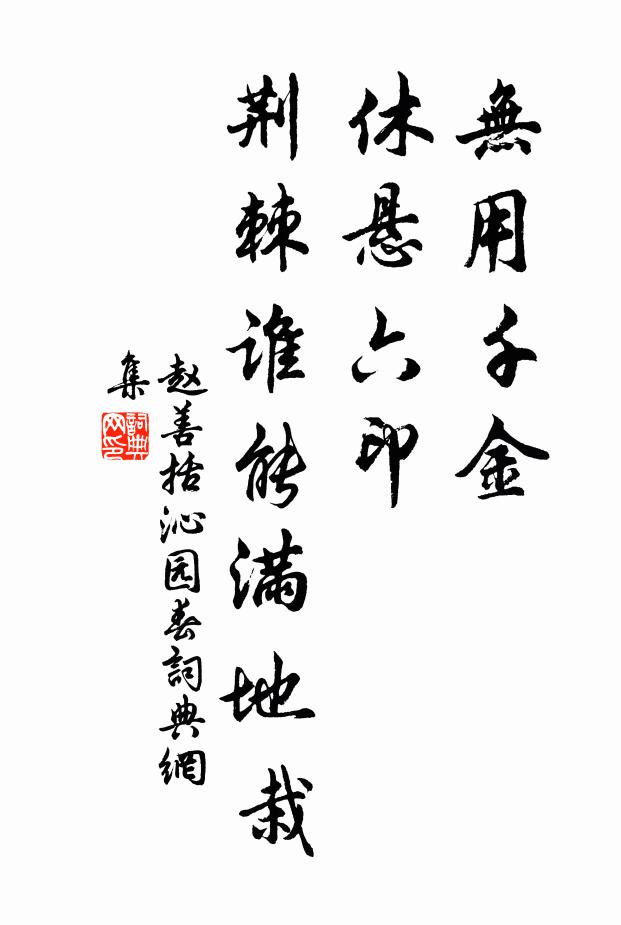 無用千金
休悬六印
荆棘谁能满地栽
赵善括沁园春詞典網
集
詞典
网印